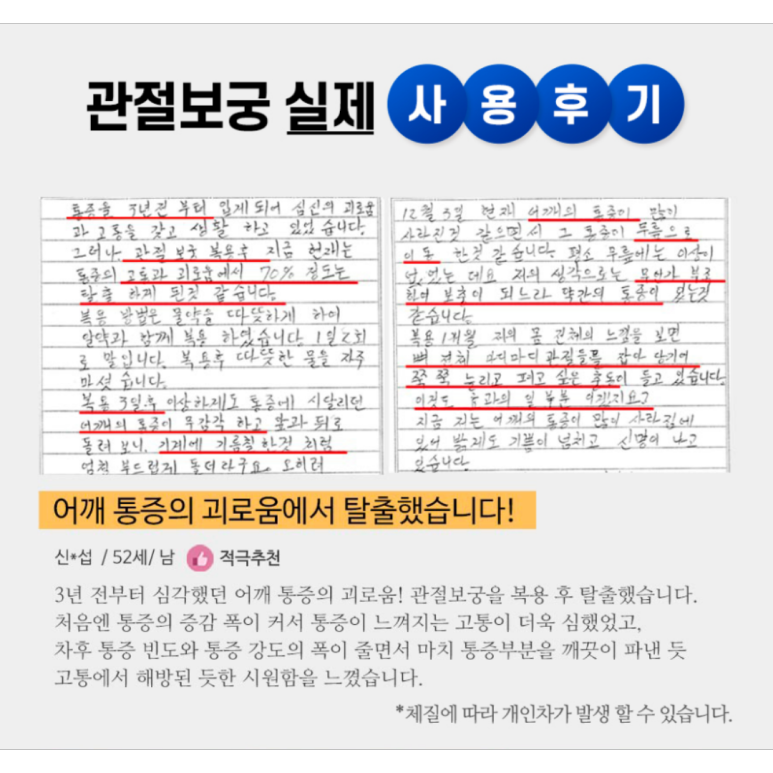 관절보궁 실제 사용후기
통증을 3년전 부터 입게 되어 심신의 괴로움
과 고통을 갖고 생활 하고 있었습니다.
그러나, 관절 보궁 복용후 지금 현재는
통증의 고토과 괴로움에서 70% 정도는
탈출 하게 된것 같습니다.
복용 방법은 물약을 따뜻하게 하여
알약과 함께 복용 하였습니다. 1일 2회
로 말입니다. 복용후 따뜻한 물을 자주
마셨습니다.
복용 3일후 이상하게도 통증에 시달리던
어깨의 통증이 무감각 하고 앞과 뒤로
돌려 보니, 기계에 기름칠 한것 처럼
엄청 부드럽게 돌더라구요. 오히려
12월 3일 현재 어깨의 통증이 많이
사라진것 같으면서 그 통증이 무릎으로
이동 한것 같습니다. 평소 무릎에는 이상이
없었는 데요 저의 생각으로는 무언가 부족
하여 보충이 되느라 약간의 통증이 있는것
같습니다.
복용 1개월 저의 몸 전체의 느낌을 보면
뼈 전체 마디마디 관절을 잡아 당기어
쭉쭉 늘리고 펴고 싶은 충동이 들고 있습니다.
이것도 효과의 일 부분 이겠지요?
지금 저는 어깨의 통증이 많이 사라짐에
있어 밝게도 기쁨이 넘치고 신명이 나고
있습니다.
어깨 통증의 괴로움에서 탈출했습니다!
신*섭 / 52세/ 남 적극추천
3년 전부터 심각했던 어깨 통증의 괴로움! 관절보궁을 복용 후 탈출했습니다.
처음엔 통증의 증감 폭이 커서 통증이 느껴지는 고통이 더욱 심했었고,
차후 통증 빈도와 통증 강도의 폭이 줄면서 마치 통증부분을 깨끗이 파낸 듯
고통에서 해방된 듯한 시원함을 느꼈습니다.
*체질에 따라 개인차가 발생 할 수 있습니다.